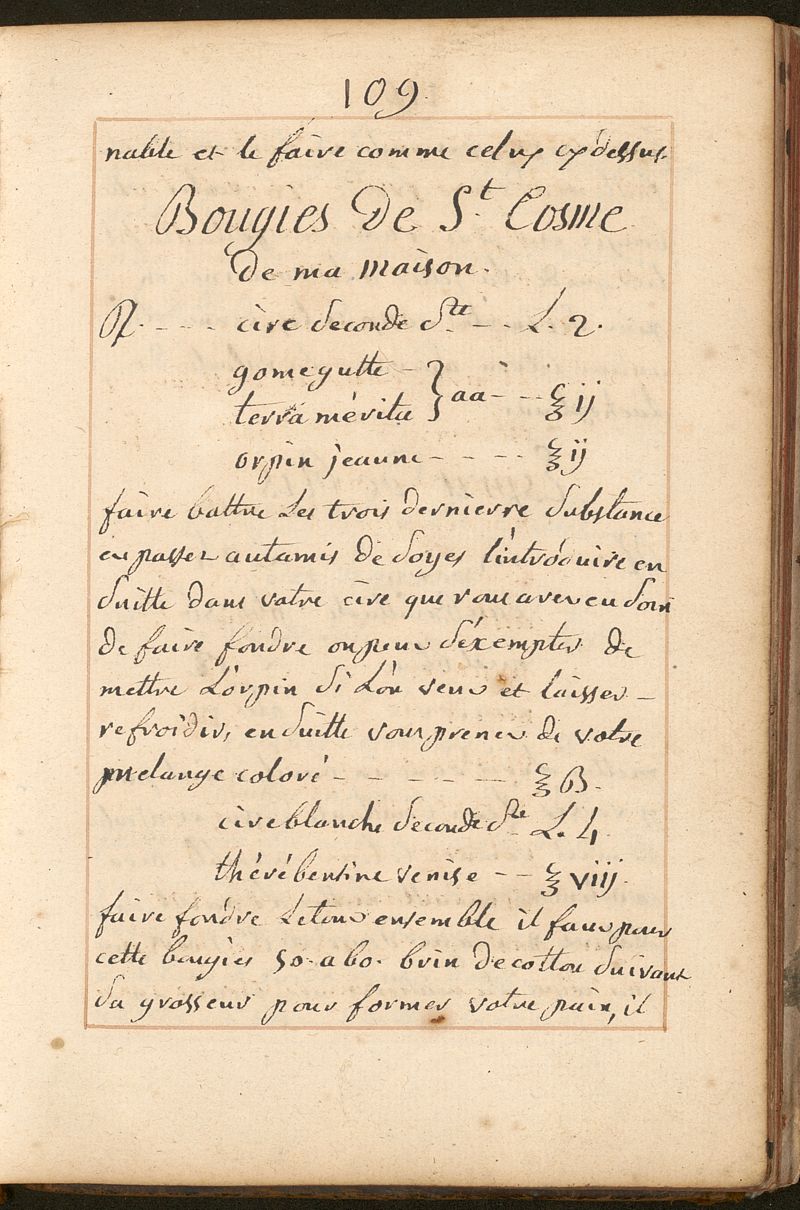 109.
nable et le faire comme celuy cy dessus.
Bougies De St. Cosme
De ma maison.
℞. - - - cire seconde Stte - - L. 2.
gomegutte -
terra mérita } aa - - ℥ ij
orpin jeaune - - - - ℥ ij
faire battre Les trois dernierre substance
en passer autamis de soyes l'introduire en
suitte dans votre cire que vous avez eu soin
de faire fondre on peux s'éxempter de
mettre L'orpin si L'on veux et laisser -
refroidir, en suitte vous prenez de votre
mélange coloré - - - - - ℥ ß.
cire blanche seconde Ste L. 4.
thérébentine venise - - ℥ viij.
faire fondre Letoux ensemble il faux pour
cette bougies 50. a 60. brin de cotton suivant
sa grosseur pour former votre pain, il